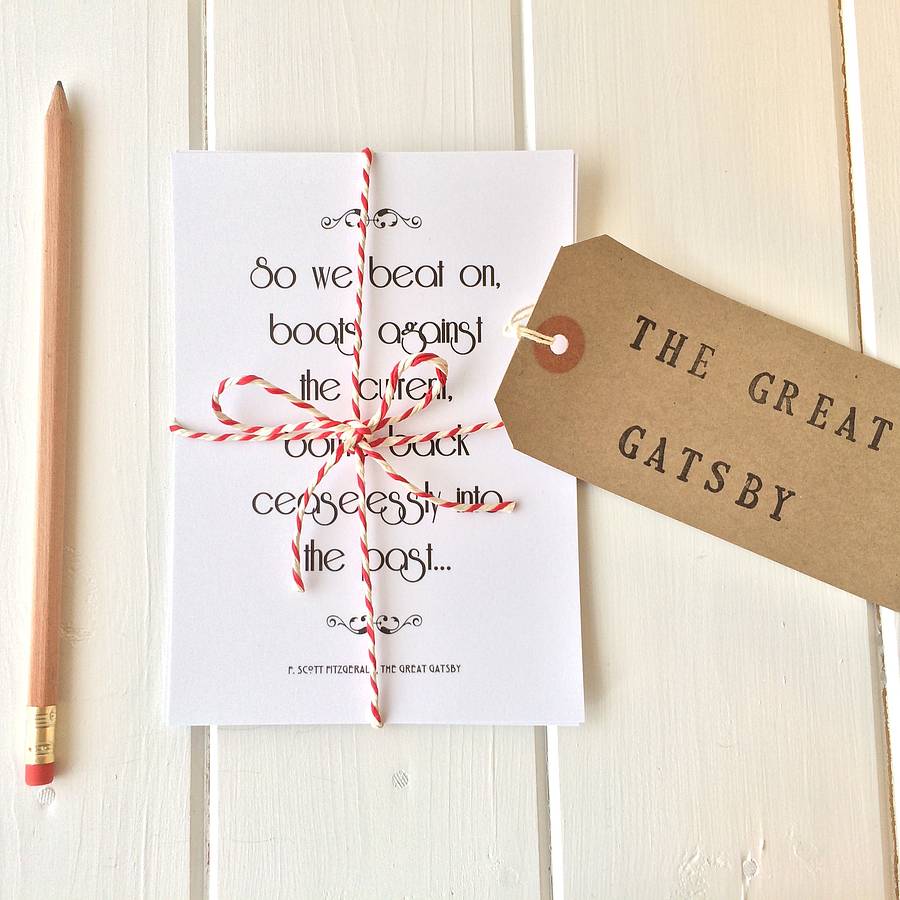 So we beat on,
boats against
the current,
borne back
ceaselessly into
the past...
F. SCOTT FITZGERALD, THE GREAT GATSBY
THE GREAT
GATSBY